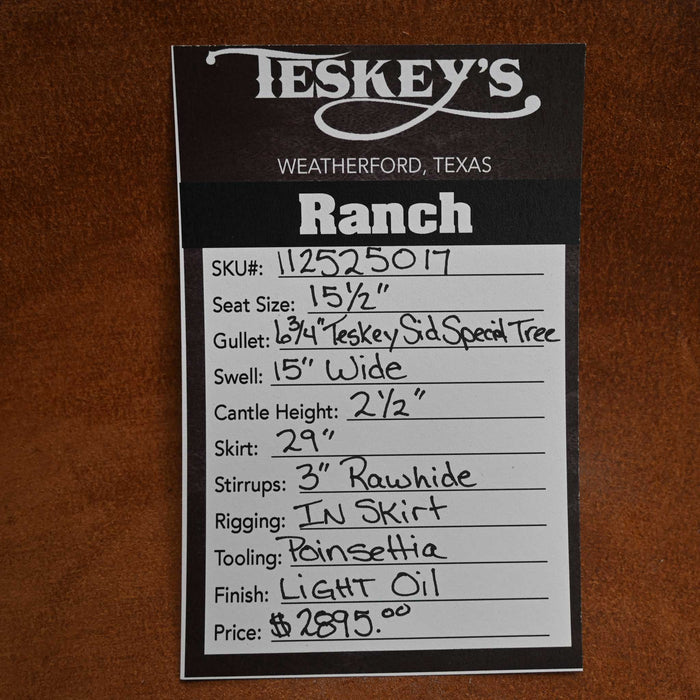 TESKEY'S
WEATHERFORD, TEXAS
Ranch
SKU#: 112525017
Seat Size: 15½"
Gullet: 6¾" Teskey Sid Special Tree
Swell: 15" Wide
Cantle Height: 2½"
Skirt: 29"
Stirrups: 3" Rawhide
Rigging: IN Skirt
Tooling: Poinsettia
Finish: LIGHT Oil
Price: $2895.00